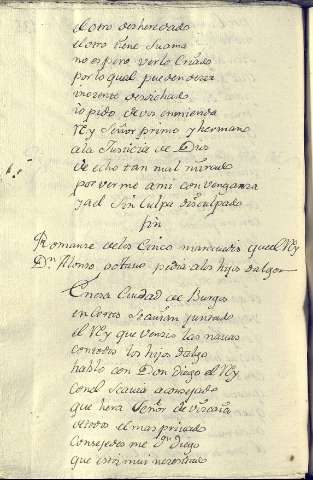 el otro desheredado
el otro tiene su ama
no espero verlo criado
por lo qual pueden desir
inozente desdichado
io pido de vos enmienda
Rey Señor primo y hermano
a la Justicia de Dios
de echo tan mal mirado
por verme a mi con venganza
y a el sin culpa disculpado
fin
Romanze de los Cinco maravedis que el Rey
Dn. Alonso octavo pedia a los hijos dalgo
En esa Ciudad de Burgos
en Cortes se avian juntado
el Rey que venzio las navas
con todos los hijos dalgo
hablo con Don Diego el Rey
con el se avia aconsejado
que hera Señor de vizcaia
de todos el mas privado
Consejedes me Dn. Diego
que estoi mui nezesitado